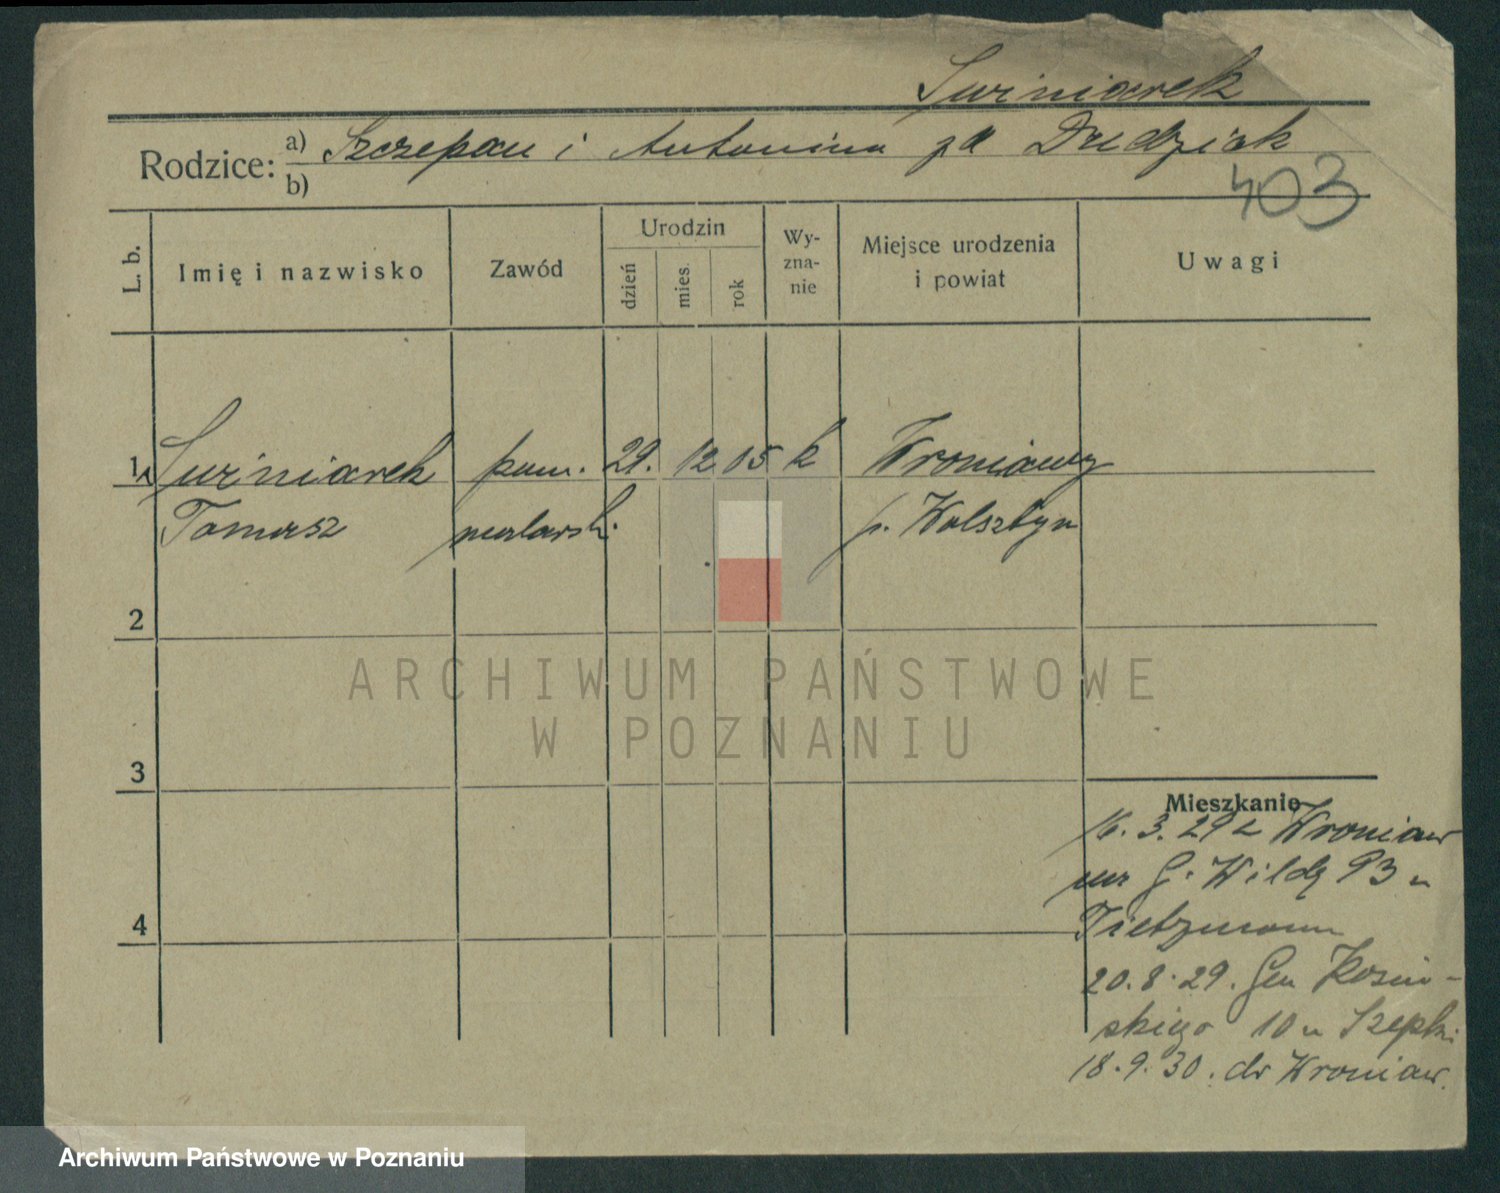 Świniarek
Rodzice: a) Szczepan i Antonina zd Dudziak
b)
403
L. b.
Imię i nazwisko
Zawód
Urodzin
dzień
mies.
rok
Wy-
zna-
nie
Miejsce urodzenia
i powiat
Uwagi
1 Świniarek pom. 29. 12 05 k Wroniawy
Tomasz malarski p. Wolsztyn
2
ARCHIWUM PAŃSTWOWE
W POZNANIU
3
Mieszkanie
16. 3. 29 z Wroniaw
na G. Wildę 93 u
Tietzmann
20. 8. 29. Gen Kosiń-
skiego 10 u Szepki
18. 9. 30. do Wroniaw.
4
Archiwum Państwowe w Poznaniu